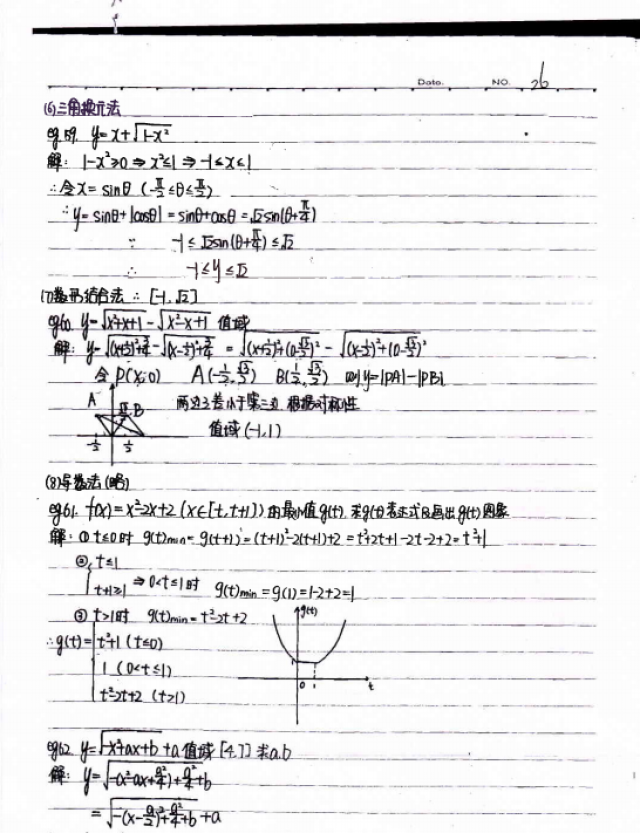 Date. NO. 26
(6)三角换元法
eg59. y=x+√(1-x²)
解: 1-x²≥0 ⇒ x²≤1 ⇒ -1≤x≤1
∴令x=sinθ (-π/2≤θ≤π/2)
∴y=sinθ+|cosθ|=sinθ+cosθ=√2sin(θ+π/4)
∵ -1≤√2sin(θ+π/4)≤√2
∴ -1≤y≤√2
(7)数形结合法 ∴[-1,√2]
eg60. y=√(x²+x+1)-√(x²-x+1) 值域
解: y=√((x+1/2)²+3/4)-√((x-1/2)²+3/4) =√((x+1/2)²+(0-√3/2)²)-√((x-1/2)²+(0-√3/2)²)
令P(x,0) A(-1/2,√3/2) B(1/2,√3/2) 则y=|PA|-|PB|
A B 两边之差小于第三边 根据对称性
-1/2 1/2 值域(-1,1)
(8)导数法(略)
eg61. f(x)=x²-2x+2 (x∈[t,t+1]) 的最小值g(t). 求g(t)表达式及画出g(t)图象
解: ① t≤0时 g(t)min=g(t+1)=(t+1)²-2(t+1)+2=t²+2t+1-2t-2+2=t²+1
② { t≤1
t+1≥1 ⇒0<t≤1时 g(t)min=g(1)=1-2+2=1
③ t>1时 g(t)min=t²-2t+2
g(t)
∴g(t)= { t²+1 (t≤0)
1 (0<t≤1)
t²-2t+2 (t>1)
0 1 t
eg62. y=√(-x²+ax+b)+a 值域[4,7] 求a.b
解: y=√(-(x²-ax+a²/4)+a²/4+b
=√(-(x-a/2)²+a²/4+b)+a